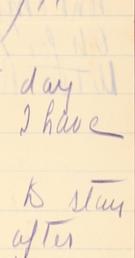 day
I have
to stay
after